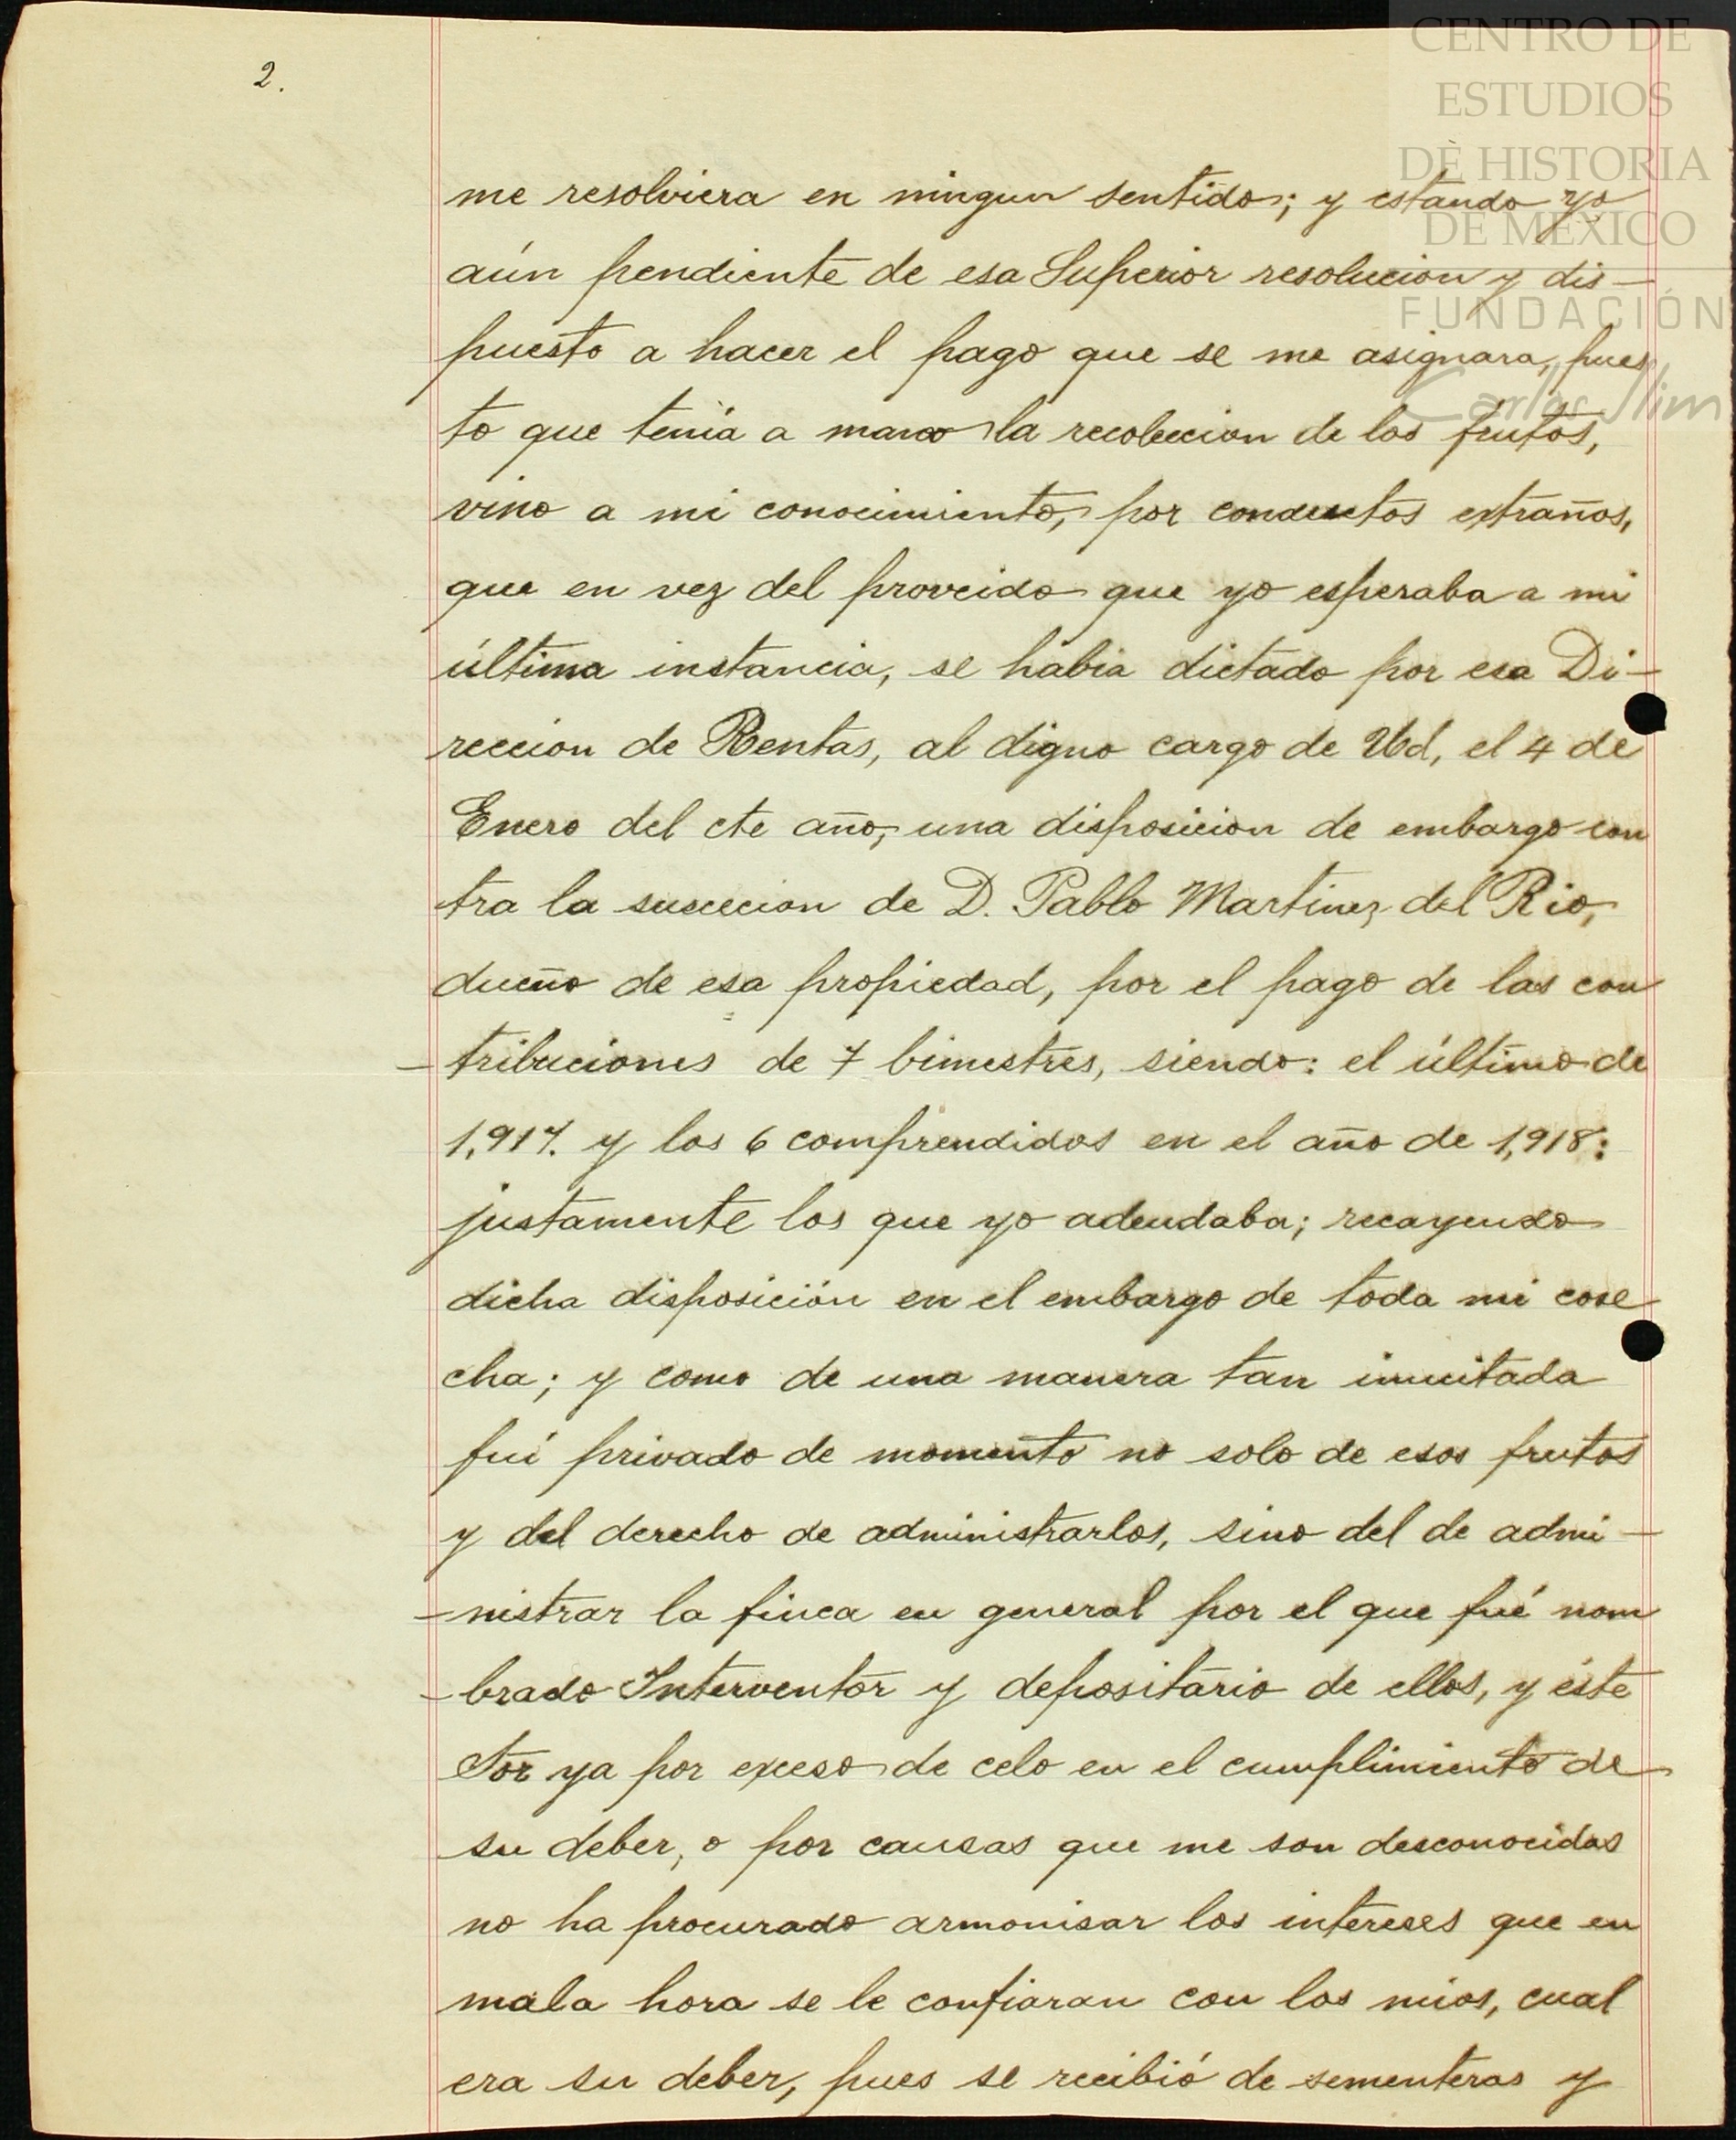 2.
CENTRO DE
ESTUDIOS
DE HISTORIA
DE MÉXICO
FUNDACIÓN
Carlos Slim
me resolviera en ningun sentido; y estando yo
aún pendiente de esa Superior resolucion y dis-
puesto a hacer el pago que se me asignara, pues
to que tenia a mano la recoleccion de los frutos,
vino a mi conocimiento, por conductos extraños,
que en vez del proveido que yo esperaba a mi
última instancia, se habia dictado por esa Di-
reccion de Rentas, al digno cargo de Ud, el 4 de
Enero del cte año, una disposicion de embargo con
tra la sucecion de D. Pablo Martinez del Rio,
dueño de esa propiedad, por el pago de las con
-tribuciones de 7 bimestres, siendo: el último de
1,917. y los 6 comprendidos en el año de 1,918:
justamente los que yo adeudaba; recayendo
dicha disposición en el embargo de toda mi cose
cha; y como de una manera tan inucitada
fui privado de momento no solo de esos frutos
y del derecho de administrarlos, sino del de admi-
-nistrar la finca en general por el que fué nom
-brado Interventor y depositario de ellos, y éste
Sor ya por exceso de celo en el cumplimiento de
su deber, o por causas que me son desconocidas
no ha procurado armonisar los intereses que en
mala hora se le confiaran con los mios, cual
era su deber, pues se recibió de sementeras y